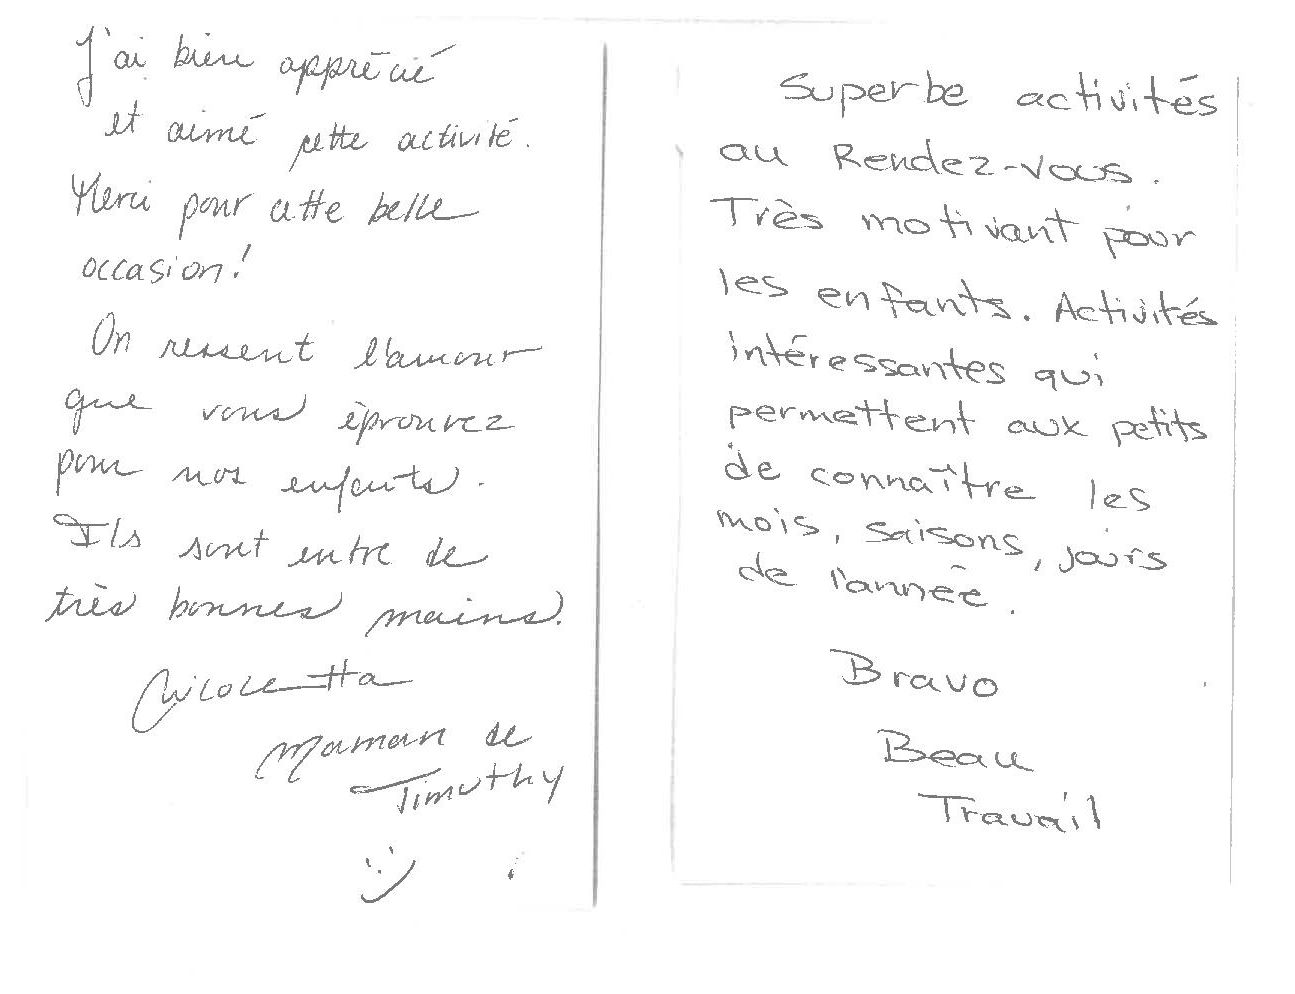 J'ai bien apprécié
et aimé cette activité.
Merci pour cette belle
occasion!
On ressent l'amour
que vous éprouvez
pour nos enfants.
Ils sont entre de
très bonnes mains.
Nicoletta
Maman de
Timothy
:)
Superbe activités
au Rendez-vous.
Très motivant pour
les enfants. Activités
intéressantes qui
permettent aux petits
de connaître les
mois, saisons, jours
de l'année.
Bravo
Beau
Travail